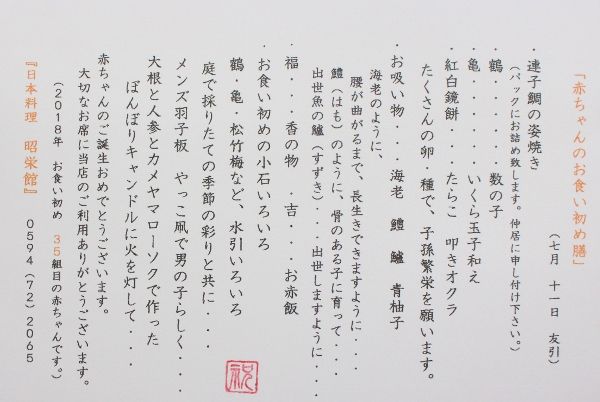 「赤ちゃんのお食い初め膳」
(七月 十一日 友引)
・連子鯛の姿焼き
(パックにお詰め致します。仲居に申し付け下さい。)
・鶴・・・・・数の子
亀・・・・・いくら玉子和え
・紅白鏡餅・・・たらこ 叩きオクラ
たくさんの卵・種で、子孫繁栄を願います。
・お吸い物・・・海老 鱧 鱸 青柚子
海老のように、
腰が曲がるまで、長生きできますように・・・
鱧(はも)のように、骨のある子に育って・・・
出世魚の鱸(すずき)・・・出世しますように・・・
・福・・・香の物 吉・・・お赤飯
・お食い初めの小石いろいろ
鶴・亀・松竹梅など、水引いろいろ
庭で採りたての季節の彩りと共に・・・
メンズ羽子板 やっこ凧で男の子らしく・・・
大根と人参とカメヤマローソクで作った
ぼんぼりキャンドルに火を灯して・・・
赤ちゃんのご誕生おめでとうございます。
大切なお席に当店のご利用ありがとうございます。
(2018年 お食い初め 35組目の赤ちゃんです。)
『日本料理 昭栄館』 0594(72)2065
祝